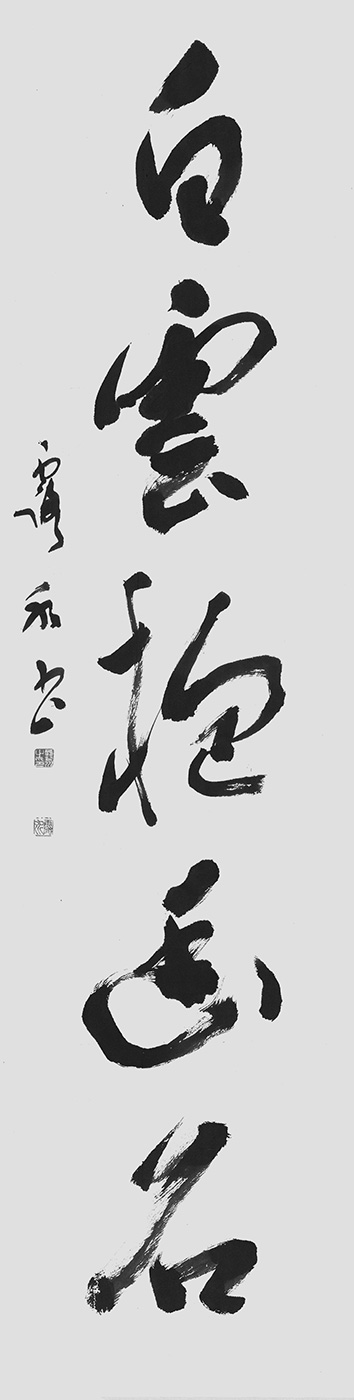 白雲抱幽石
書